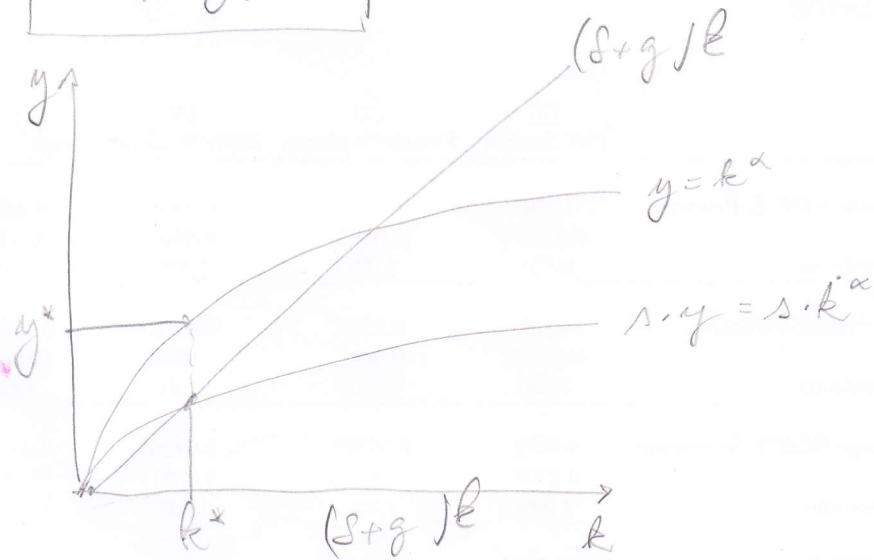 (δ+g)k
y
y = k^α
s·y = s·k^α
y*
k*
(δ+g)k
k